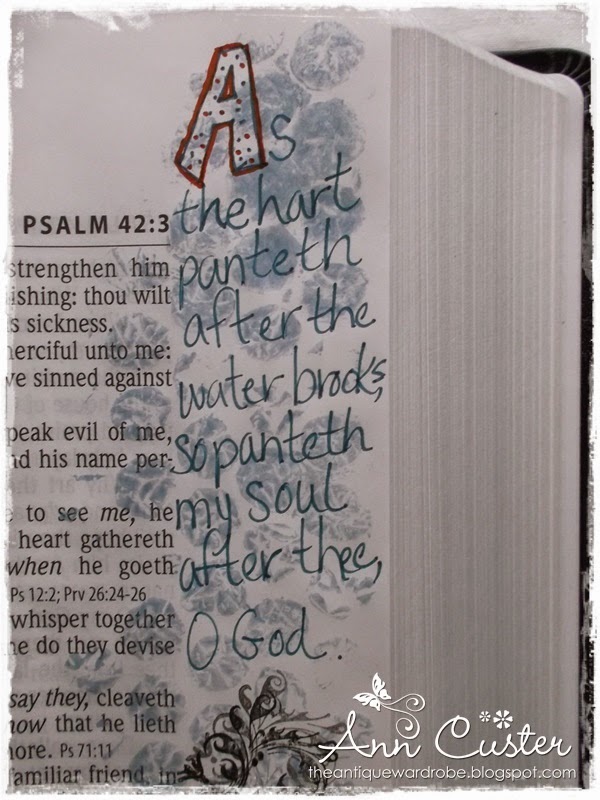 As
the hart
panteth
after the
water brooks,
so panteth
my soul
after thee,
O God.
PSALM 42:3
strengthen him
ishing: thou wilt
s sickness.
erciful unto me:
ve sinned against
peak evil of me,
nd his name per-
to see me, he
heart gathereth
when he goeth
Ps 12:2; Prv 26:24-26
whisper together
he do they devise
say they, cleaveth
now that he lieth
ore. Ps 71:11
familiar friend, in
Ann Custer
theantiquewardrobe.blogspot.com